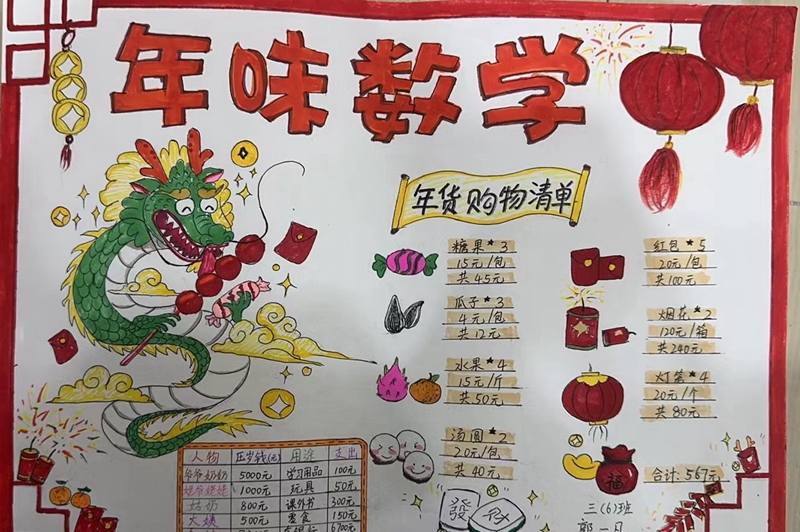 年味数学
年货购物清单
糖果*3
15元/包
共45元
瓜子*3
4元/包
共12元
水果*4
15元/斤
共50元
汤圆*2
20元/包
共40元
红包*5
20元/包
共100元
烟花*2
120元/箱
共240元
灯笼*4
20元/个
共80元
福
合计:567元
發
人物 压岁钱(元) 用途 支出
爷爷奶奶 5000元 学习用品 100元
姥爷姥姥 1000元 玩具 50元
姑奶 800元 课外书 300元
大姨 500元 零食 150元
6700元
三(6)班